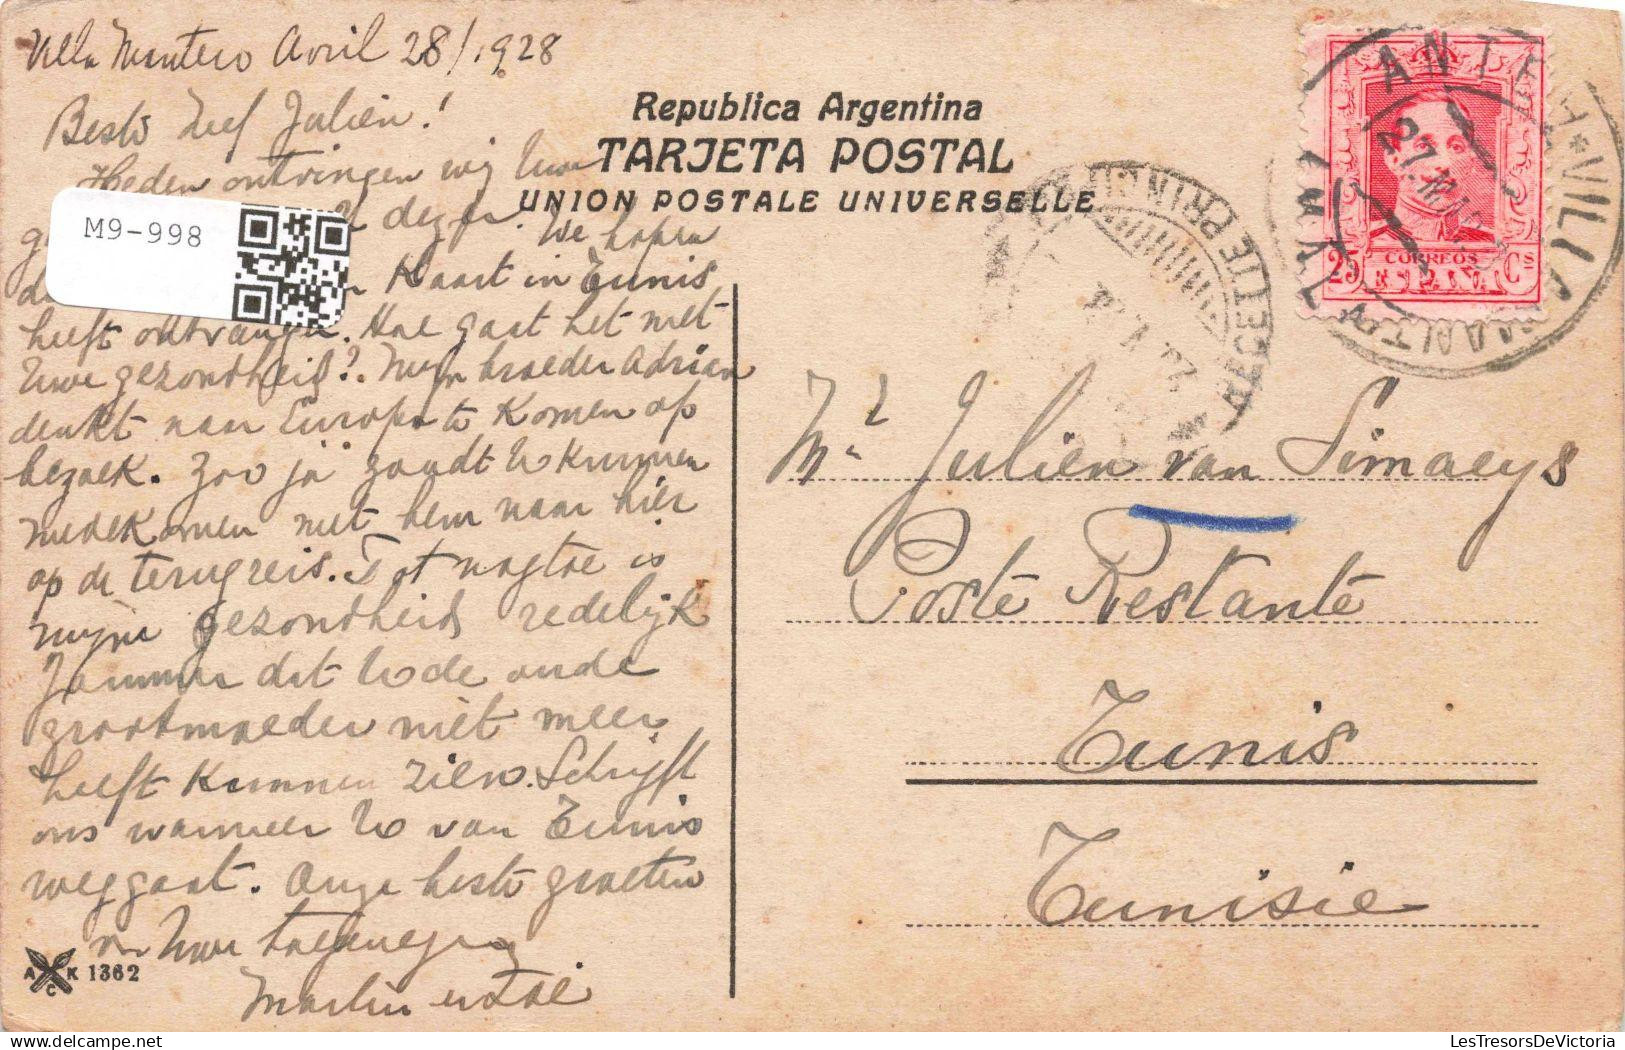 Villa Montero Avril 28/1928
Beste Neef Julien!
Heden ontvingen wij Uwe
dezer. We hopen
Kaart in Tunis
heeft ontvangen. Hoe gaat het met
Uwe gezondheid? Mijn broeder Adrian
denkt naar Europa te Komen op
bezoek. Zoo ja zoudt U Kunnen
medeKomen met hem naar hier
op de terugreis. Tot nogtoe is
mijne gezondheid redelijk
Jammer dat U de oude
grootmoeder niet meer
heeft Kunnen zien. Schrijft
ons wanneer U van Tunis
weggaat. Onze beste groeten
van Uwe
Martin en
M9-998
A C K 1362
Republica Argentina
TARJETA POSTAL
UNION POSTALE UNIVERSELLE
CORREOS
25 ESPAÑA Cs
RECETTE PRINCIPALE
Mr Julien van Simaeys
Poste Restante
Tunis
Tunisie
LesTresorsDeVictoria